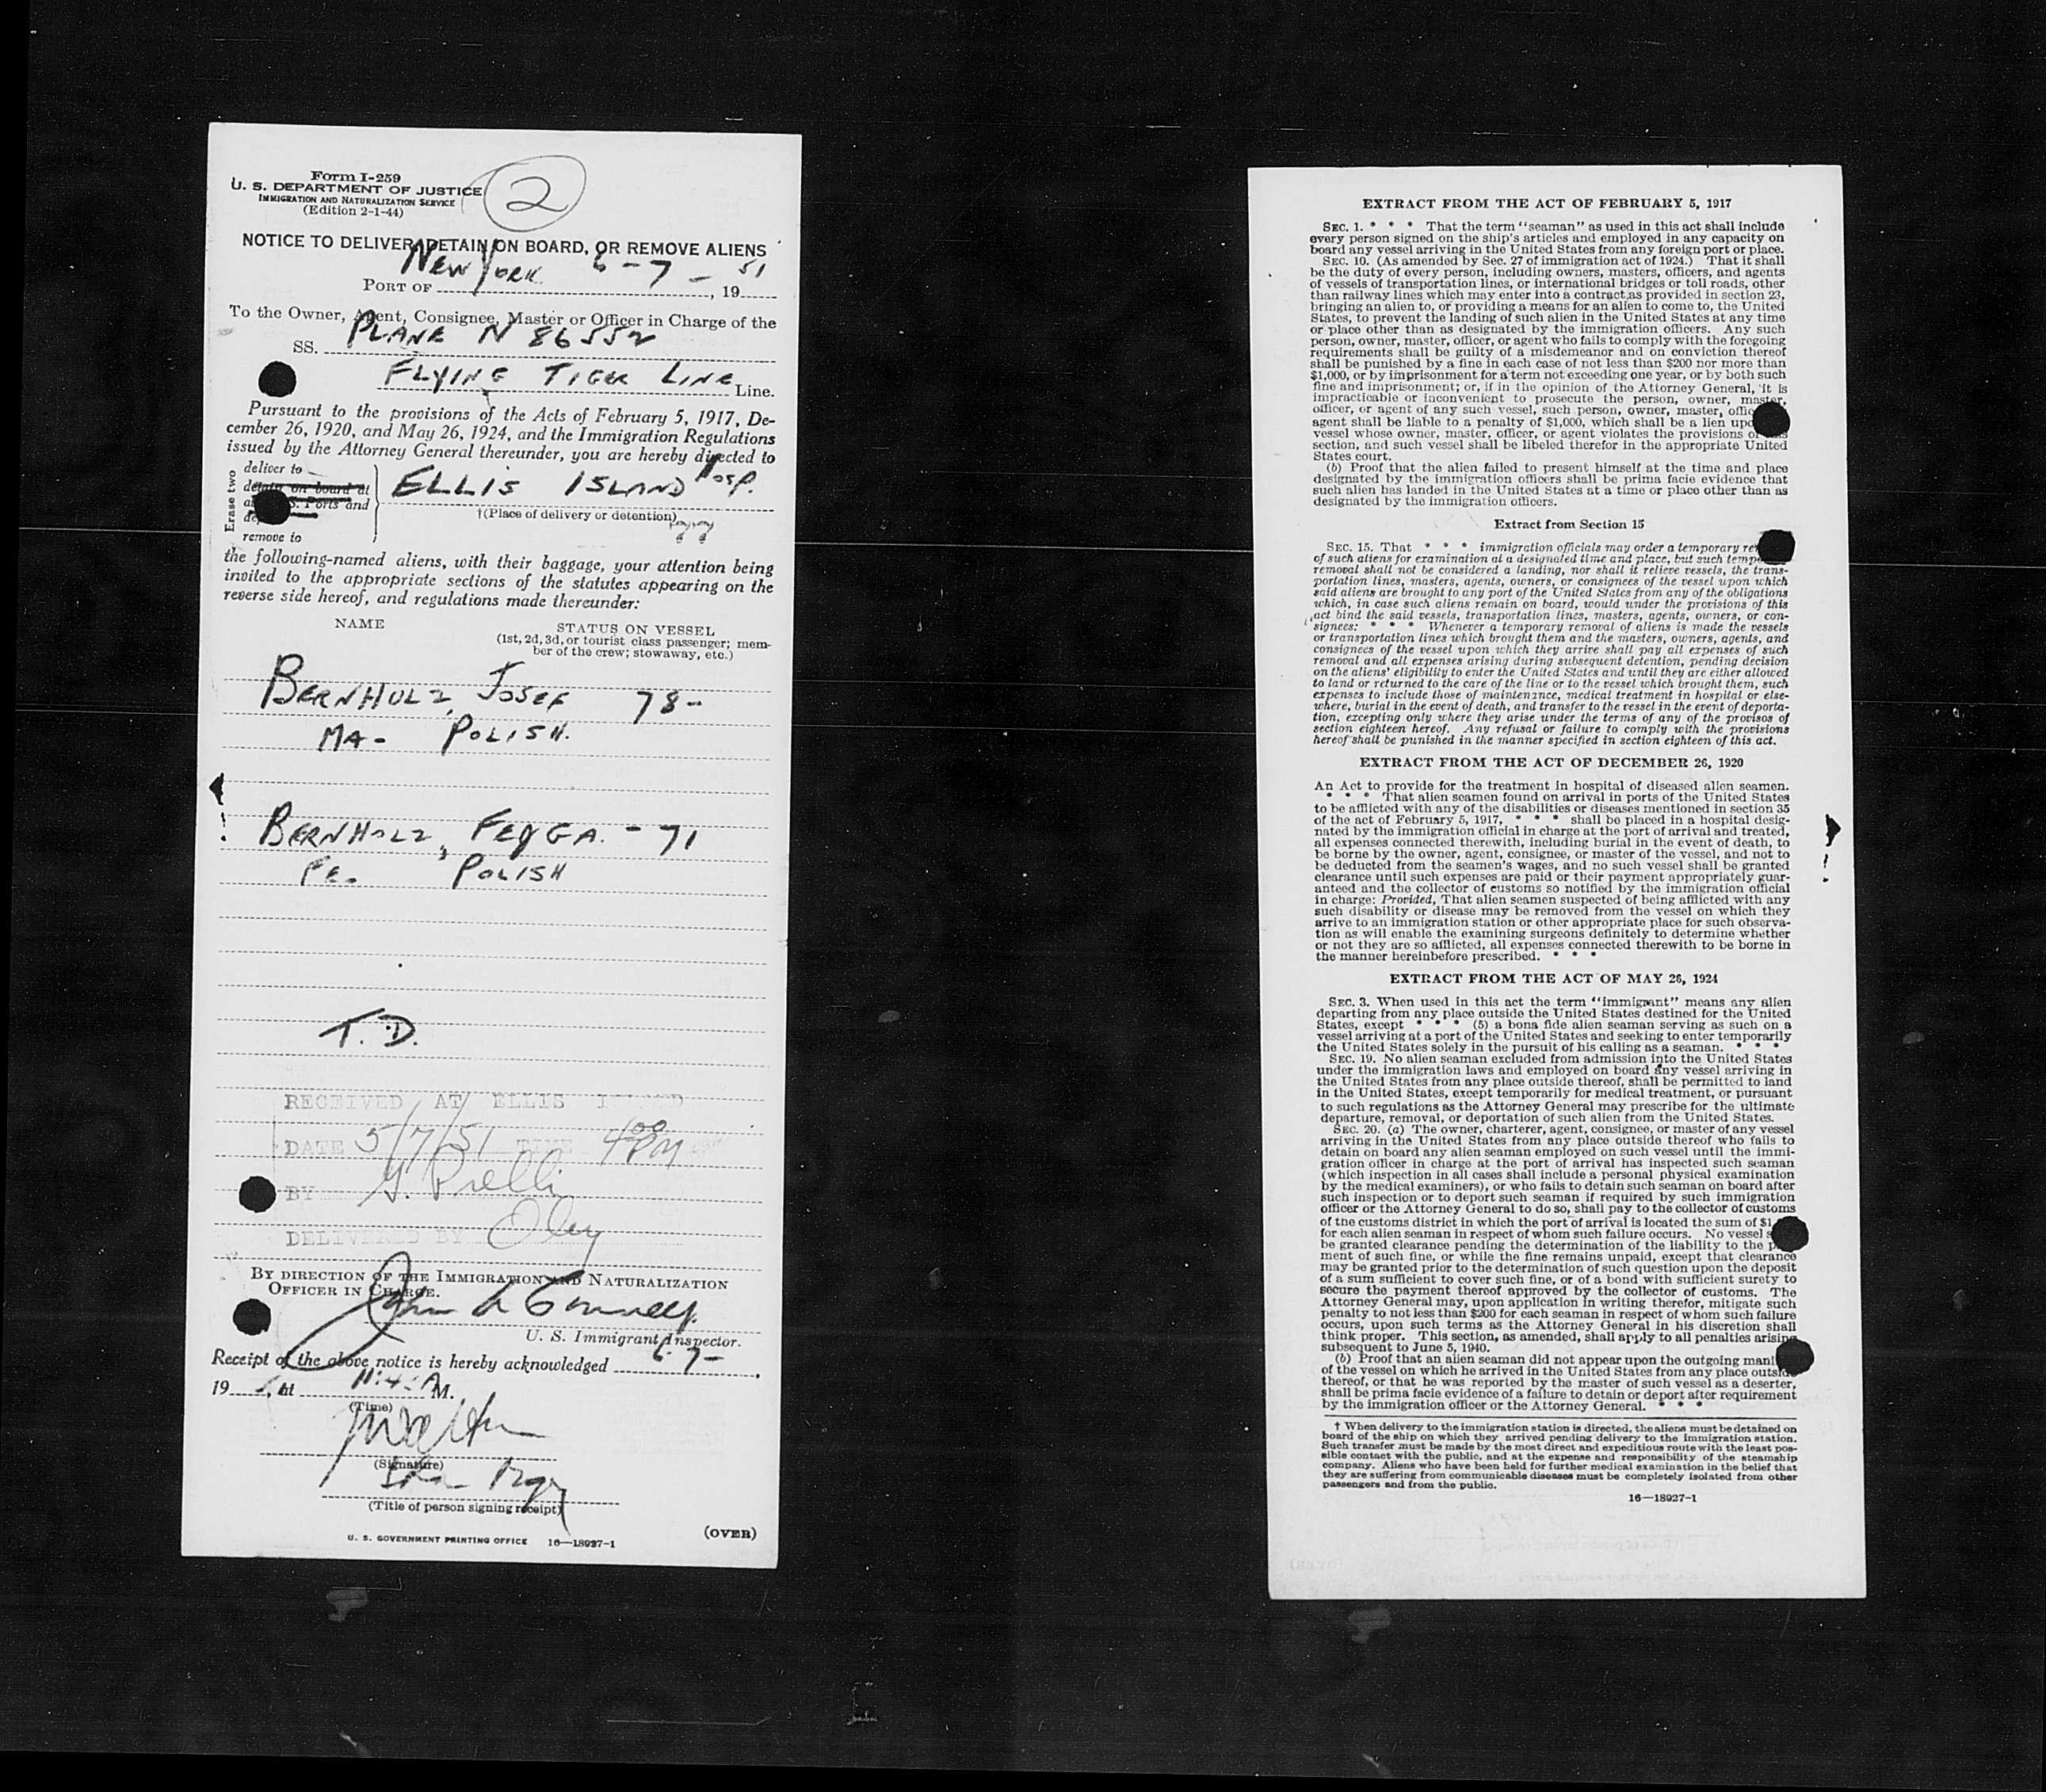 Form I-259
U. S. DEPARTMENT OF JUSTICE
IMMIGRATION AND NATURALIZATION SERVICE
(Edition 2-1-44)
2
NOTICE TO DELIVER, DETAIN ON BOARD, OR REMOVE ALIENS
PORT OF New York 5-7-, 1951
To the Owner, Agent, Consignee, Master or Officer in Charge of the
SS. PLANE N 86552
FLYING TIGER LINE Line.
Pursuant to the provisions of the Acts of February 5, 1917, De-
cember 26, 1920, and May 26, 1924, and the Immigration Regulations
issued by the Attorney General thereunder, you are hereby directed to
Erase two
deliver to
detain on board at
S. Ports and
remove to
ELLIS ISLAND Hosp.
†(Place of delivery or detention)
the following-named aliens, with their baggage, your attention being
invited to the appropriate sections of the statutes appearing on the
reverse side hereof, and regulations made thereunder:
NAME STATUS ON VESSEL
(1st, 2d, 3d, or tourist class passenger; mem-
ber of the crew; stowaway, etc.)
BERNHOLZ, JOSEF 78-
MA- POLISH.
BERNHOLZ, FEYGA. - 71
FE. POLISH
T.D.
RECEIVED AT ELLIS ISLAND
DATE 5/7/51 TIME 4 00 PM
BY
DELIVERED BY
BY DIRECTION OF THE IMMIGRATION AND NATURALIZATION
OFFICER IN CHARGE.
U. S. Immigrant Inspector.
Receipt of the above notice is hereby acknowledged 5-7-,
19, at M.
(Time)
(Signature)
(Title of person signing receipt)
U. S. GOVERNMENT PRINTING OFFICE 16—18927-1
(OVER)
EXTRACT FROM THE ACT OF FEBRUARY 5, 1917
SEC. 1. * * * That the term "seaman" as used in this act shall include
every person signed on the ship's articles and employed in any capacity on
board any vessel arriving in the United States from any foreign port or place.
SEC. 10. (As amended by Sec. 27 of immigration act of 1924.) That it shall
be the duty of every person, including owners, masters, officers, and agents
of vessels of transportation lines, or international bridges or toll roads, other
than railway lines which may enter into a contract as provided in section 23,
bringing an alien to, or providing a means for an alien to come to, the United
States, to prevent the landing of such alien in the United States at any time
or place other than as designated by the immigration officers. Any such
person, owner, master, officer, or agent who fails to comply with the foregoing
requirements shall be guilty of a misdemeanor and on conviction thereof
shall be punished by a fine in each case of not less than $200 nor more than
$1,000, or by imprisonment for a term not exceeding one year, or by both such
fine and imprisonment; or, if in the opinion of the Attorney General, it is
impracticable or inconvenient to prosecute the person, owner, master,
officer, or agent of any such vessel, such person, owner, master, offic
agent shall be liable to a penalty of $1,000, which shall be a lien upo
vessel whose owner, master, officer, or agent violates the provisions of this
section, and such vessel shall be libeled therefor in the appropriate United
States court.
(b) Proof that the alien failed to present himself at the time and place
designated by the immigration officers shall be prima facie evidence that
such alien has landed in the United States at a time or place other than as
designated by the immigration officers.
Extract from Section 15
SEC. 15. That * * * immigration officials may order a temporary re
of such aliens for examination at a designated time and place, but such tempo
removal shall not be considered a landing, nor shall it relieve vessels, the trans-
portation lines, masters, agents, owners, or consignees of the vessel upon which
said aliens are brought to any port of the United States from any of the obligations
which, in case such aliens remain on board, would under the provisions of this
act bind the said vessels, transportation lines, masters, agents, owners, or con-
signees: * * * Whenever a temporary removal of aliens is made the vessels
or transportation lines which brought them and the masters, owners, agents, and
consignees of the vessel upon which they arrive shall pay all expenses of such
removal and all expenses arising during subsequent detention, pending decision
on the aliens' eligibility to enter the United States and until they are either allowed
to land or returned to the care of the line or to the vessel which brought them, such
expenses to include those of maintenance, medical treatment in hospital or else-
where, burial in the event of death, and transfer to the vessel in the event of deporta-
tion, excepting only where they arise under the terms of any of the provisos of
section eighteen hereof. Any refusal or failure to comply with the provisions
hereof shall be punished in the manner specified in section eighteen of this act.
EXTRACT FROM THE ACT OF DECEMBER 26, 1920
An Act to provide for the treatment in hospital of diseased alien seamen.
* * * That alien seamen found on arrival in ports of the United States
to be afflicted with any of the disabilities or diseases mentioned in section 35
of the act of February 5, 1917, * * * shall be placed in a hospital desig-
nated by the immigration official in charge at the port of arrival and treated,
all expenses connected therewith, including burial in the event of death, to
be borne by the owner, agent, consignee, or master of the vessel, and not to
be deducted from the seamen's wages, and no such vessel shall be granted
clearance until such expenses are paid or their payment appropriately guar-
anteed and the collector of customs so notified by the immigration official
in charge: Provided, That alien seamen suspected of being afflicted with any
such disability or disease may be removed from the vessel on which they
arrive to an immigration station or other appropriate place for such observa-
tion as will enable the examining surgeons definitely to determine whether
or not they are so afflicted, all expenses connected therewith to be borne in
the manner hereinbefore prescribed. * * *
EXTRACT FROM THE ACT OF MAY 26, 1924
SEC. 3. When used in this act the term "immigrant" means any alien
departing from any place outside the United States destined for the United
States, except * * * (5) a bona fide alien seaman serving as such on a
vessel arriving at a port of the United States and seeking to enter temporarily
the United States solely in the pursuit of his calling as a seaman. * * *
SEC. 19. No alien seaman excluded from admission into the United States
under the immigration laws and employed on board any vessel arriving in
the United States from any place outside thereof, shall be permitted to land
in the United States, except temporarily for medical treatment, or pursuant
to such regulations as the Attorney General may prescribe for the ultimate
departure, removal, or deportation of such alien from the United States.
SEC. 20. (a) The owner, charterer, agent, consignee, or master of any vessel
arriving in the United States from any place outside thereof who fails to
detain on board any alien seaman employed on such vessel until the immi-
gration officer in charge at the port of arrival has inspected such seaman
(which inspection in all cases shall include a personal physical examination
by the medical examiners), or who fails to detain such seaman on board after
such inspection or to deport such seaman if required by such immigration
officer or the Attorney General to do so, shall pay to the collector of customs
of the customs district in which the port of arrival is located the sum of $1,
for each alien seaman in respect of whom such failure occurs. No vessel s
be granted clearance pending the determination of the liability to the p
ment of such fine, or while the fine remains unpaid, except that clearance
may be granted prior to the determination of such question upon the deposit
of a sum sufficient to cover such fine, or of a bond with sufficient surety to
secure the payment thereof approved by the collector of customs. The
Attorney General may, upon application in writing therefor, mitigate such
penalty to not less than $200 for each seaman in respect of whom such failure
occurs, upon such terms as the Attorney General in his discretion shall
think proper. This section, as amended, shall apply to all penalties arising
subsequent to June 5, 1940.
(b) Proof that an alien seaman did not appear upon the outgoing mani
of the vessel on which he arrived in the United States from any place outside
thereof, or that he was reported by the master of such vessel as a deserter,
shall be prima facie evidence of a failure to detain or deport after requirement
by the immigration officer or the Attorney General. * * *
† When delivery to the immigration station is directed, the aliens must be detained on
board of the ship on which they arrived pending delivery to the immigration station.
Such transfer must be made by the most direct and expeditious route with the least pos-
sible contact with the public, and at the expense and responsibility of the steamship
company. Aliens who have been held for further medical examination in the belief that
they are suffering from communicable diseases must be completely isolated from other
passengers and from the public.
16—18927-1